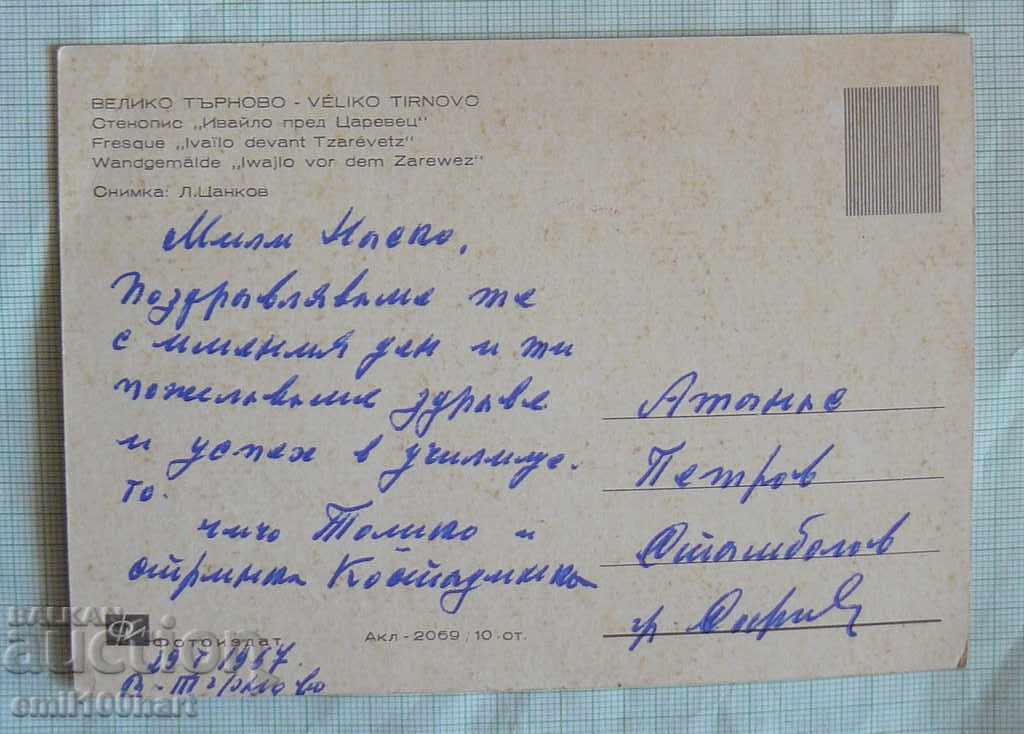 ВЕЛИКО ТЪРНОВО - VÉLIKO TIRNOVO
Стенопис „Ивайло пред Царевец"
Fresque „Ivaïlo devant Tzarévetz"
Wandgemälde „Iwajlo vor dem Zarewez"
Снимка: Л.Цанков
Мили Наско,
Поздравяваме те
с имения ден и ти
пожелаваме здраве
и успех в училище.
то.
чичо Толико и
стринка Костадинка
Атанас
Петров
Стамболов
гр.
Фотоиздат
Акл-2069/10·от.
19 I 1967
В-Търново
BALKAN
auction
emil100hart